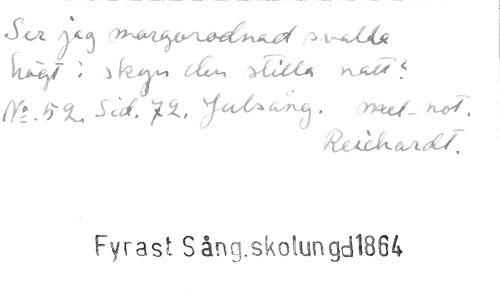 Ser jag morgorodnad svalla
högt i skyn den stilla natt?
No. 52. Sid. 72. Julsång. mel. not.
Reichardt.
Fyrast Sång.skolungd1864